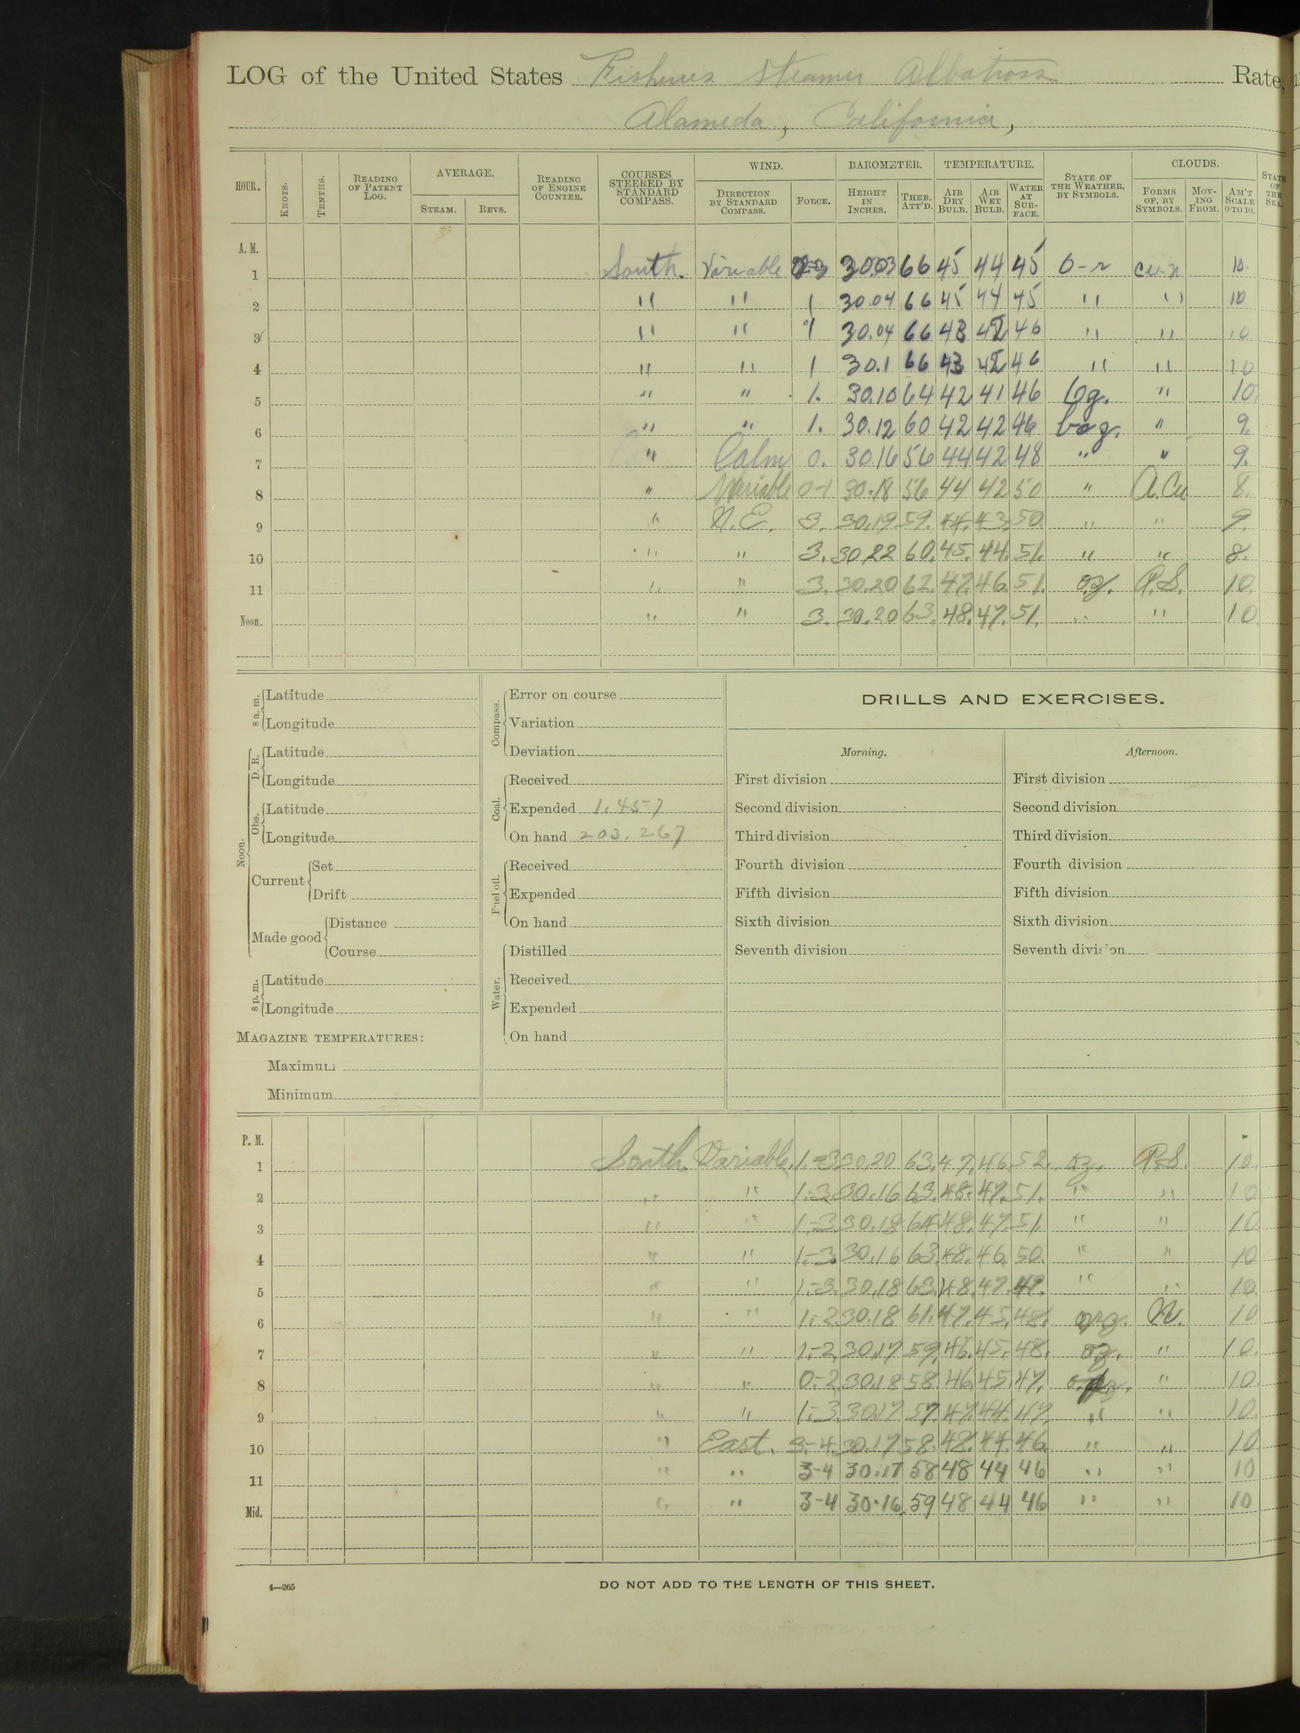 LOG of the United States Fisheries Steamer Albatross Rate,
Alameda, California,
HOUR. KNOTS. TENTHS. READING OF PATENT LOG. AVERAGE. STEAM. REVS. READING OF ENGINE COUNTER. COURSES STEERED BY STANDARD COMPASS. WIND. DIRECTION BY STANDARD COMPASS. FORCE. BAROMETER. HEIGHT IN INCHES. THER. ATT'D. TEMPERATURE. AIR DRY BULB. AIR WET BULB. WATER AT SURFACE. STATE OF THE WEATHER, BY SYMBOLS. CLOUDS. FORMS OF, BY SYMBOLS. MOVING FROM. AM'T SCALE 0 TO 10. STATE OF THE SEA.
A. M.
1 South. Variable 30.03 66 45 44 45 O-r cu-n 10.
2 " " 1 30.04 66 45 44 45 " " 10
3 " " 1 30.04 66 43 42 46 " " 10
4 " " 1 30.1 66 43 42 46 " " 10
5 " " 1. 30.10 64 42 41 46 " 10.
6 " " 1. 30.12 60 42 42 46 " 9.
7 " Calm 0. 30.16 56 44 42 48 " " 9.
8 " Variable 0-1 30.18 56 44 42 50 " A.Cu 8.
9 " N.E. 3. 30.19 59. 44. 43. 50. " " 9.
10 " " 3. 30.22 60. 45. 44. 51. " " 8.
11 " " 3. 30.20 62. 47. 46. 51. oz. 10.
Noon. " " 3. 30.20 63. 48. 47. 51. " " 10
8 a. m. Latitude
Longitude
Noon. D. R. Latitude
Longitude
Obs. Latitude
Longitude
Current Set
Drift
Made good Distance
Course
8 p. m. Latitude
Longitude
MAGAZINE TEMPERATURES:
Maximum
Minimum
Compass. Error on course
Variation
Deviation
Coal. Received
Expended 1,457
On hand 203,267
Fuel oil. Received
Expended
On hand
Water. Distilled
Received
Expended
On hand
DRILLS AND EXERCISES.
Morning. Afternoon.
First division First division
Second division Second division
Third division Third division
Fourth division Fourth division
Fifth division Fifth division
Sixth division Sixth division
Seventh division Seventh division
P. M.
1 South. Variable. 1.-3 30.20 63. 47. 46. 52. oz. 10.
2 " " 1.-3 30.16 63. 48. 47. 51. " " 10
3 " " 1.-3. 30.18 64 48. 47. 51. " " 10
4 " " 1.-3. 30.16 63. 48. 46. 50. " " 10
5 " " 1.-3. 30.18 63. 48. 47. " " 10
6 " " 1.-2. 30.18 61. 47. 45. 48. N. 10
7 " " 1.-2. 30.17 59. 46. 45. 48. oz. " 10.
8 " " 0.-2. 30.18 58. 46. 45. 47. " 10.
9 " " 1.-3. 30.17 57. 47. 44. 47. " " 10.
10 " East. 3.-4. 30.17 58. 48. 44. 46. " " 10
11 " " 3-4 30.17 58 48 44 46 " " 10
Mid. " " 3-4 30.16 59 48 44 46 " " 10
4—265
DO NOT ADD TO THE LENGTH OF THIS SHEET.